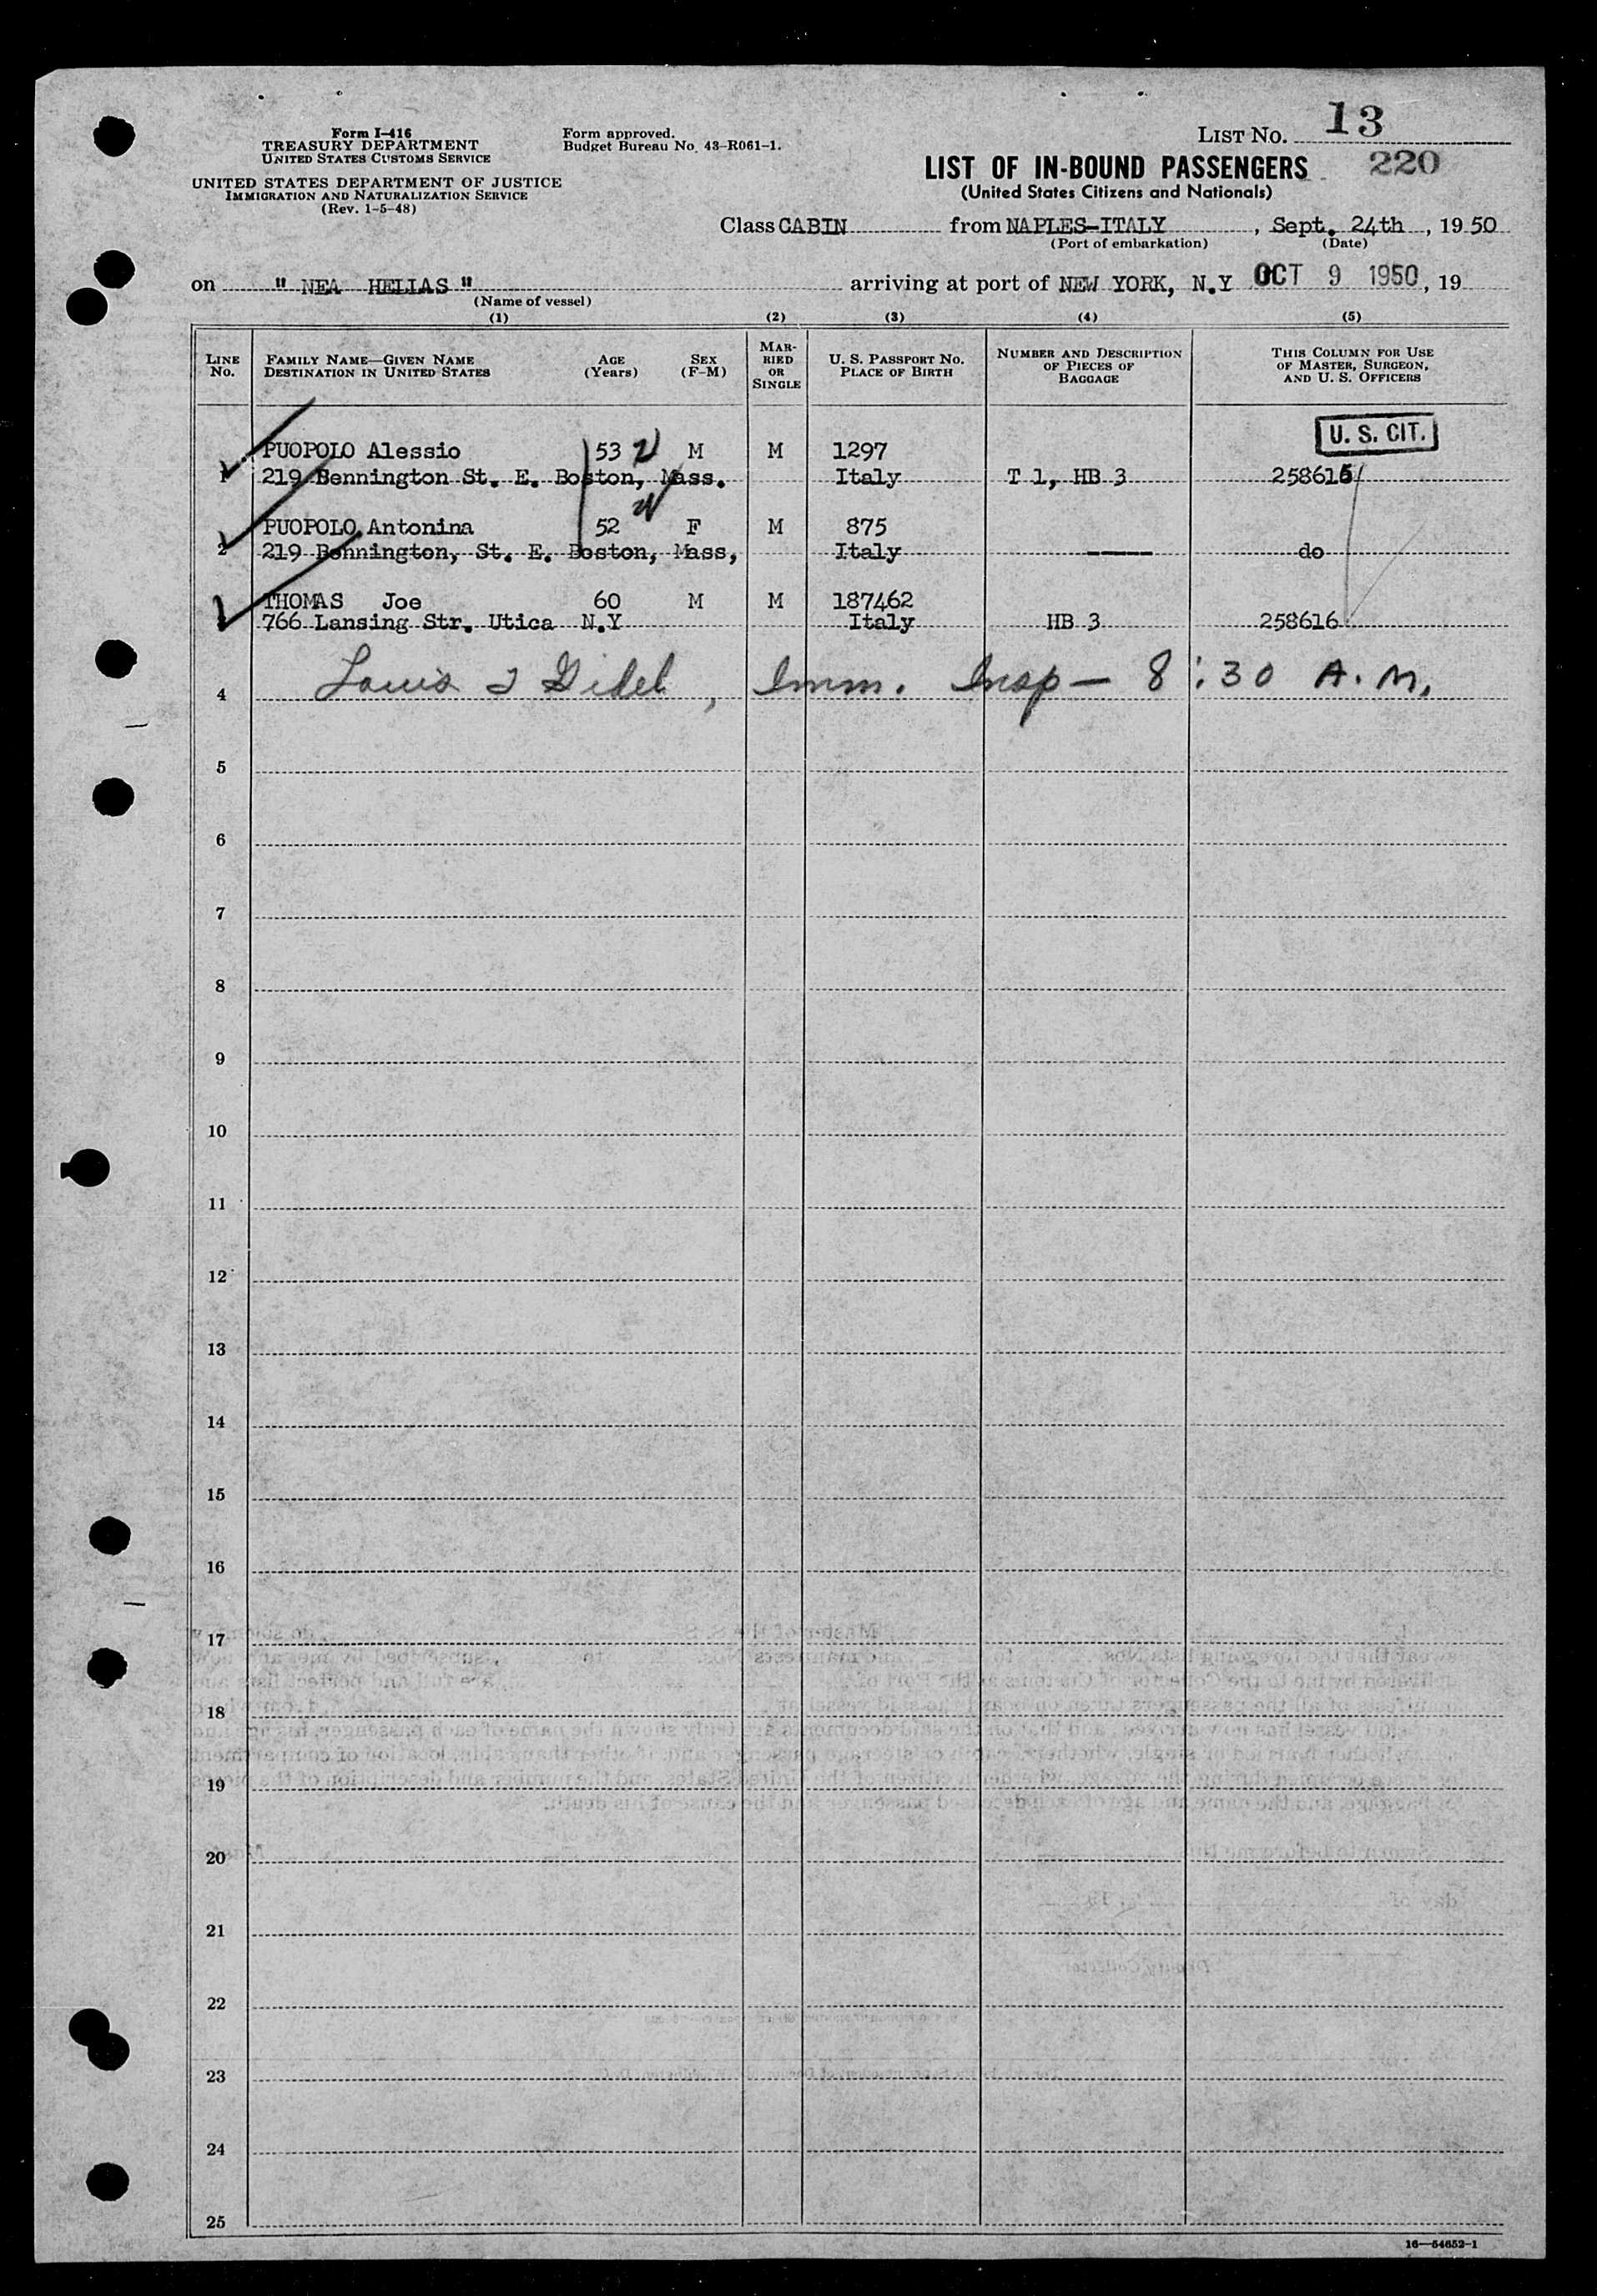 Form I-416
TREASURY DEPARTMENT
UNITED STATES CUSTOMS SERVICE
UNITED STATES DEPARTMENT OF JUSTICE
IMMIGRATION AND NATURALIZATION SERVICE
(Rev. 1-5-48)
Form approved.
Budget Bureau No. 43-R061-1.
LIST NO. 13
LIST OF IN-BOUND PASSENGERS 220
(United States Citizens and Nationals)
Class CABIN from NAPLES-ITALY, Sept. 24th, 1950
(Port of embarkation) (Date)
on " NEA HELLAS " arriving at port of NEW YORK, N.Y OCT 9 1950, 19
(Name of vessel)
(1) (2) (3) (4) (5)
LINE No. FAMILY NAME—GIVEN NAME DESTINATION IN UNITED STATES AGE (Years) SEX (F-M) MARRIED OR SINGLE U. S. PASSPORT NO. PLACE OF BIRTH NUMBER AND DESCRIPTION OF PIECES OF BAGGAGE THIS COLUMN FOR USE OF MASTER, SURGEON, AND U. S. OFFICERS
U. S. CIT.
PUOPOLO Alessio 53 M M 1297
1 219 Bennington St. E. Boston, Mass. Italy T 1, HB 3 258615
PUOPOLO, Antonina 52 F M 875
2 219 Bennington, St. E. Boston, Mass, Italy —— do
THOMAS Joe 60 M M 187462
766 Lansing Str. Utica N.Y Italy HB 3 258616
4 Louis Gidel, Imm. Insp — 8:30 A.M.
5
6
7
8
9
10
11
12
13
14
15
16
17
18
19
20
21
22
23
24
25
16—54652-1